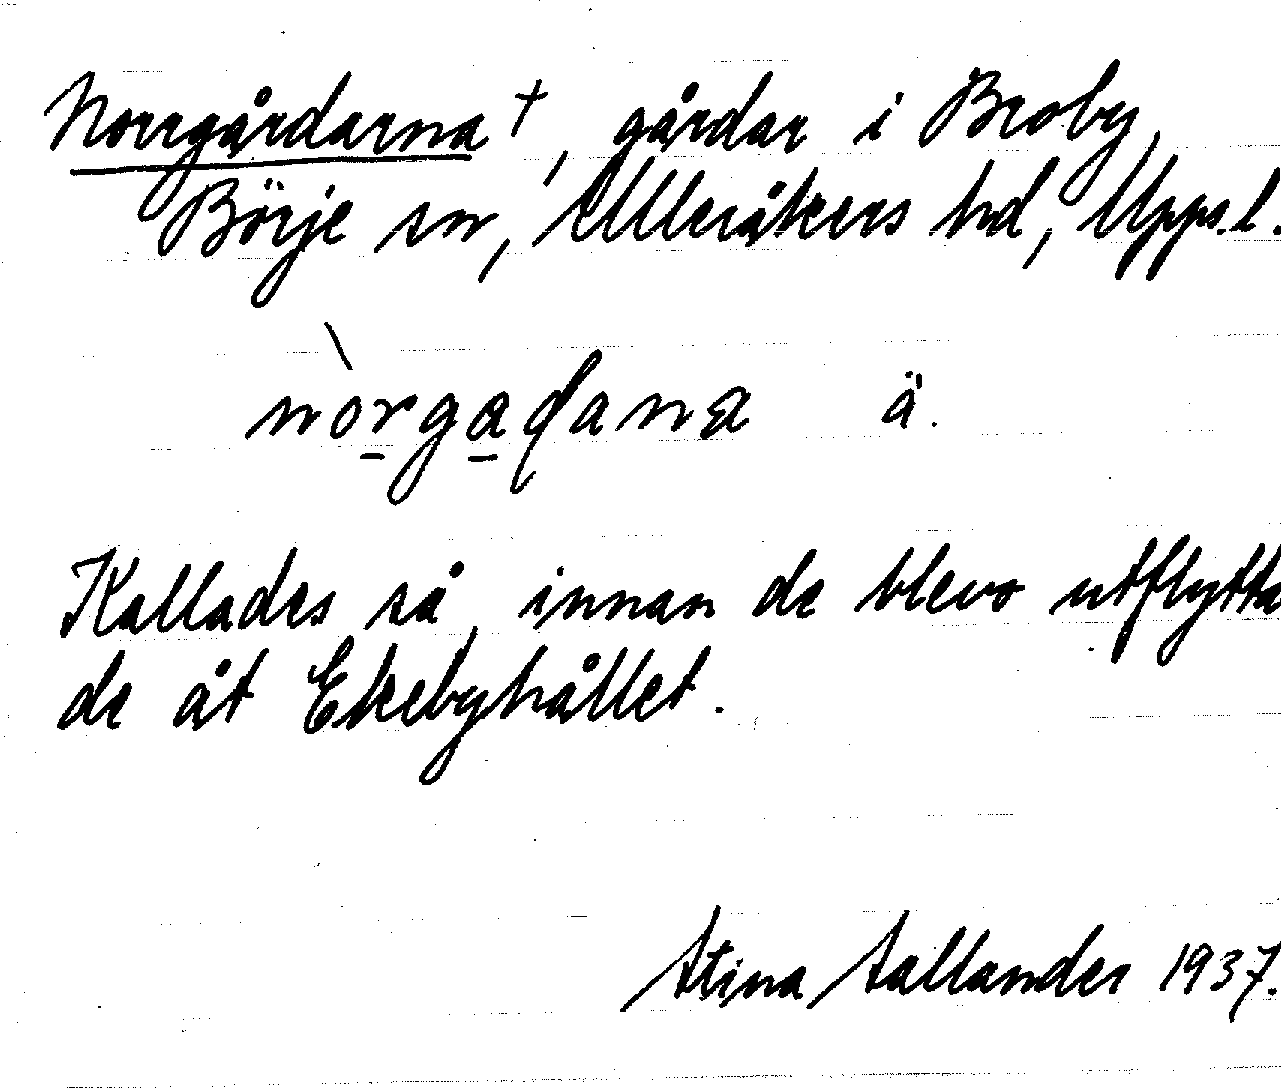 Norrgårdarna†, gårdar i Broby,
Börje sn, Ulleråkers hd, Upps.l.
nòrgaɖana ä.
Kallades så, innan de blevo utflytta
de åt Ekebyhållet.
Stina Sallander 1937.